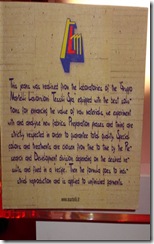 This piece was realized from the laboratories of the Gruppo
equipped with the best
for enhancing the value of new materials, we experiment
with and analyse new fabrics. Preparation phases and times are
strictly respected in order to guarantee total quality. Special
colours and treatments are chosen from time to time by the Re-
search and Development division depending on the desired re-
sults, and fixed in a recipe. Then the formula goes to
reproduction and is applied to unfinished garments.